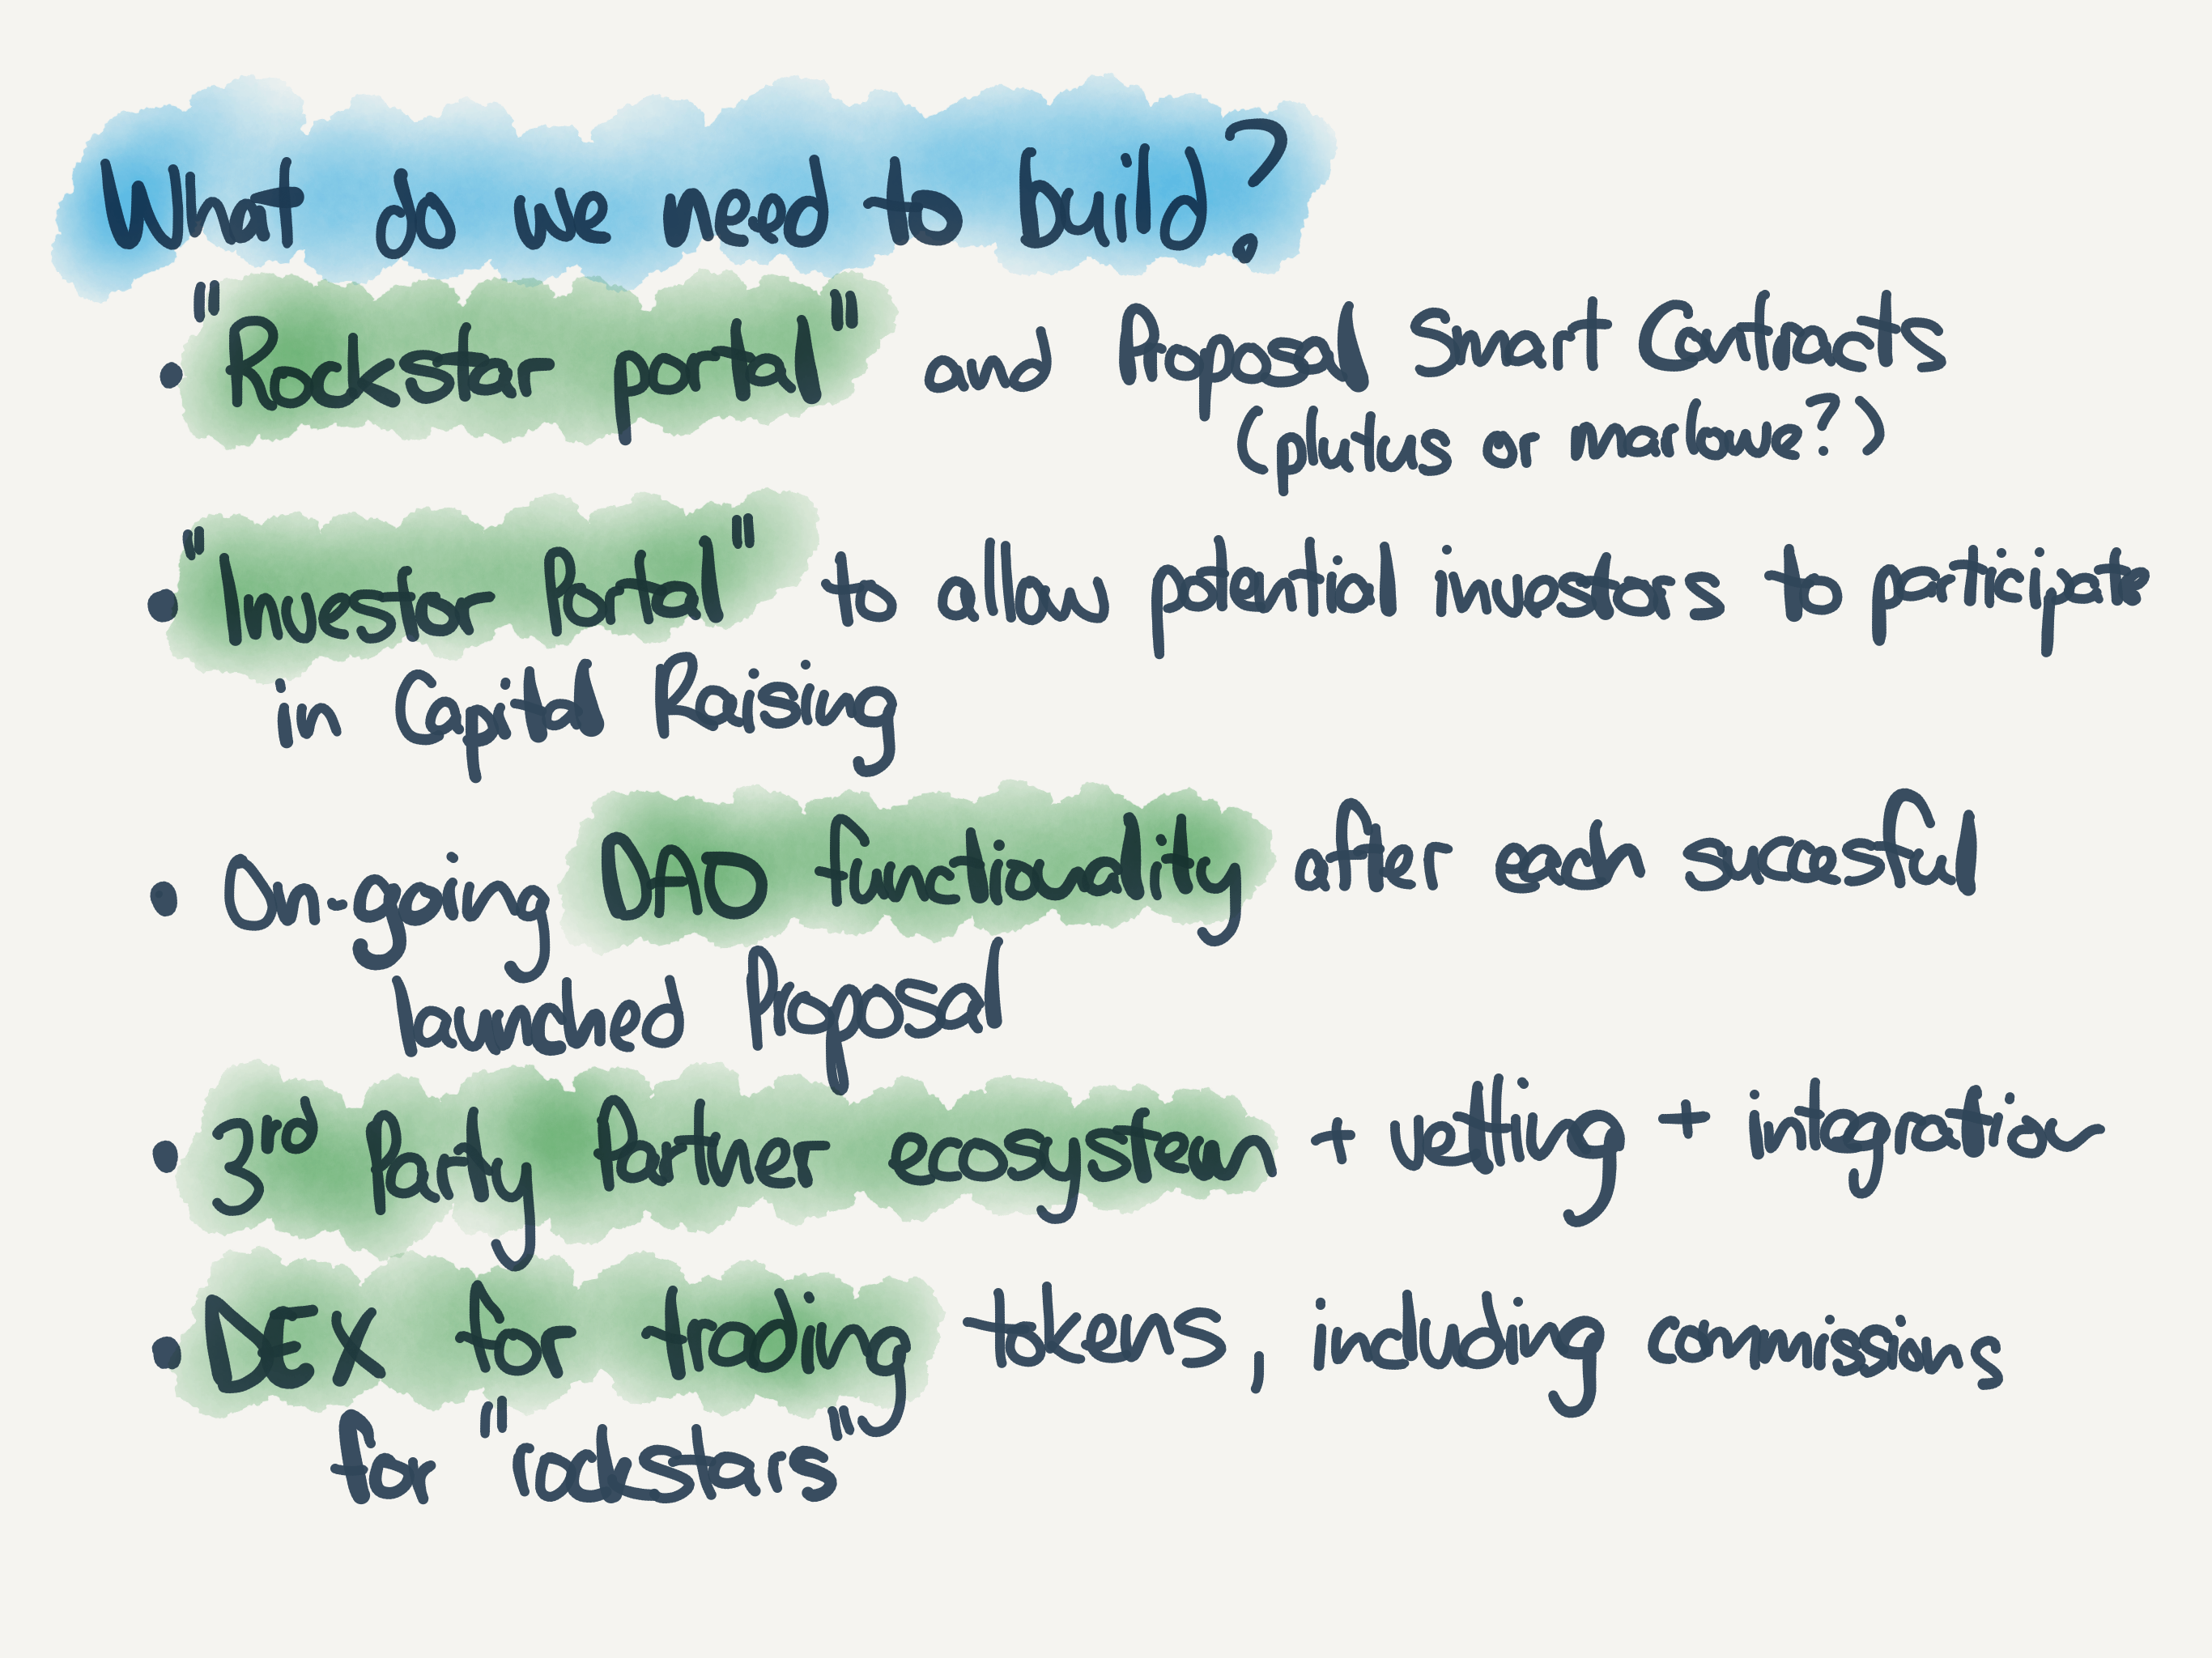 What do we need to build?
• "Rockstar portal" and Proposal Smart Contracts
(plutus or marlowe?)
• "Investor Portal" to allow potential investors to participate
in Capital Raising
• On-going DAO functionality after each succesful
launched Proposal
• 3rd Party Partner ecosystem + vetting + integration
• DEX for trading tokens, including commissions
for "rockstars"